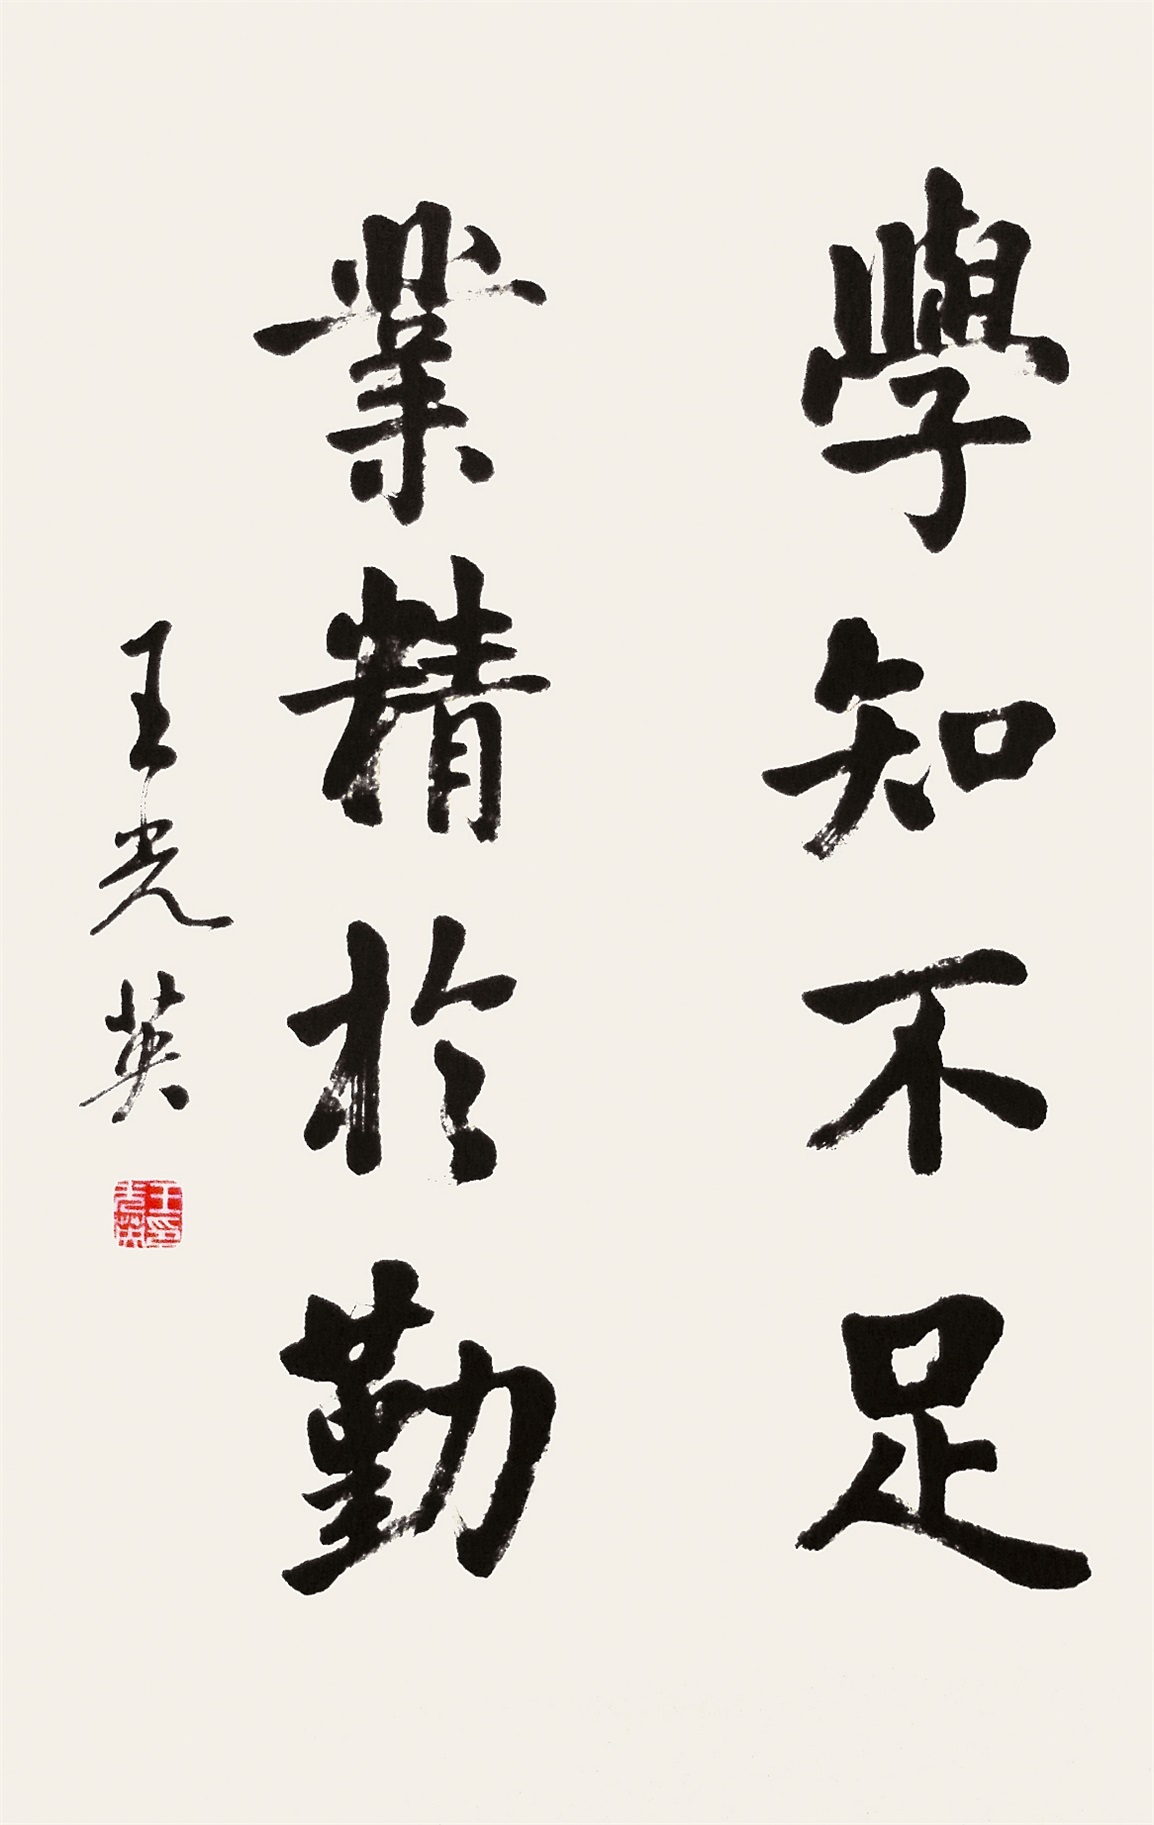 學知不足
業精於勤
王光英
王印光英